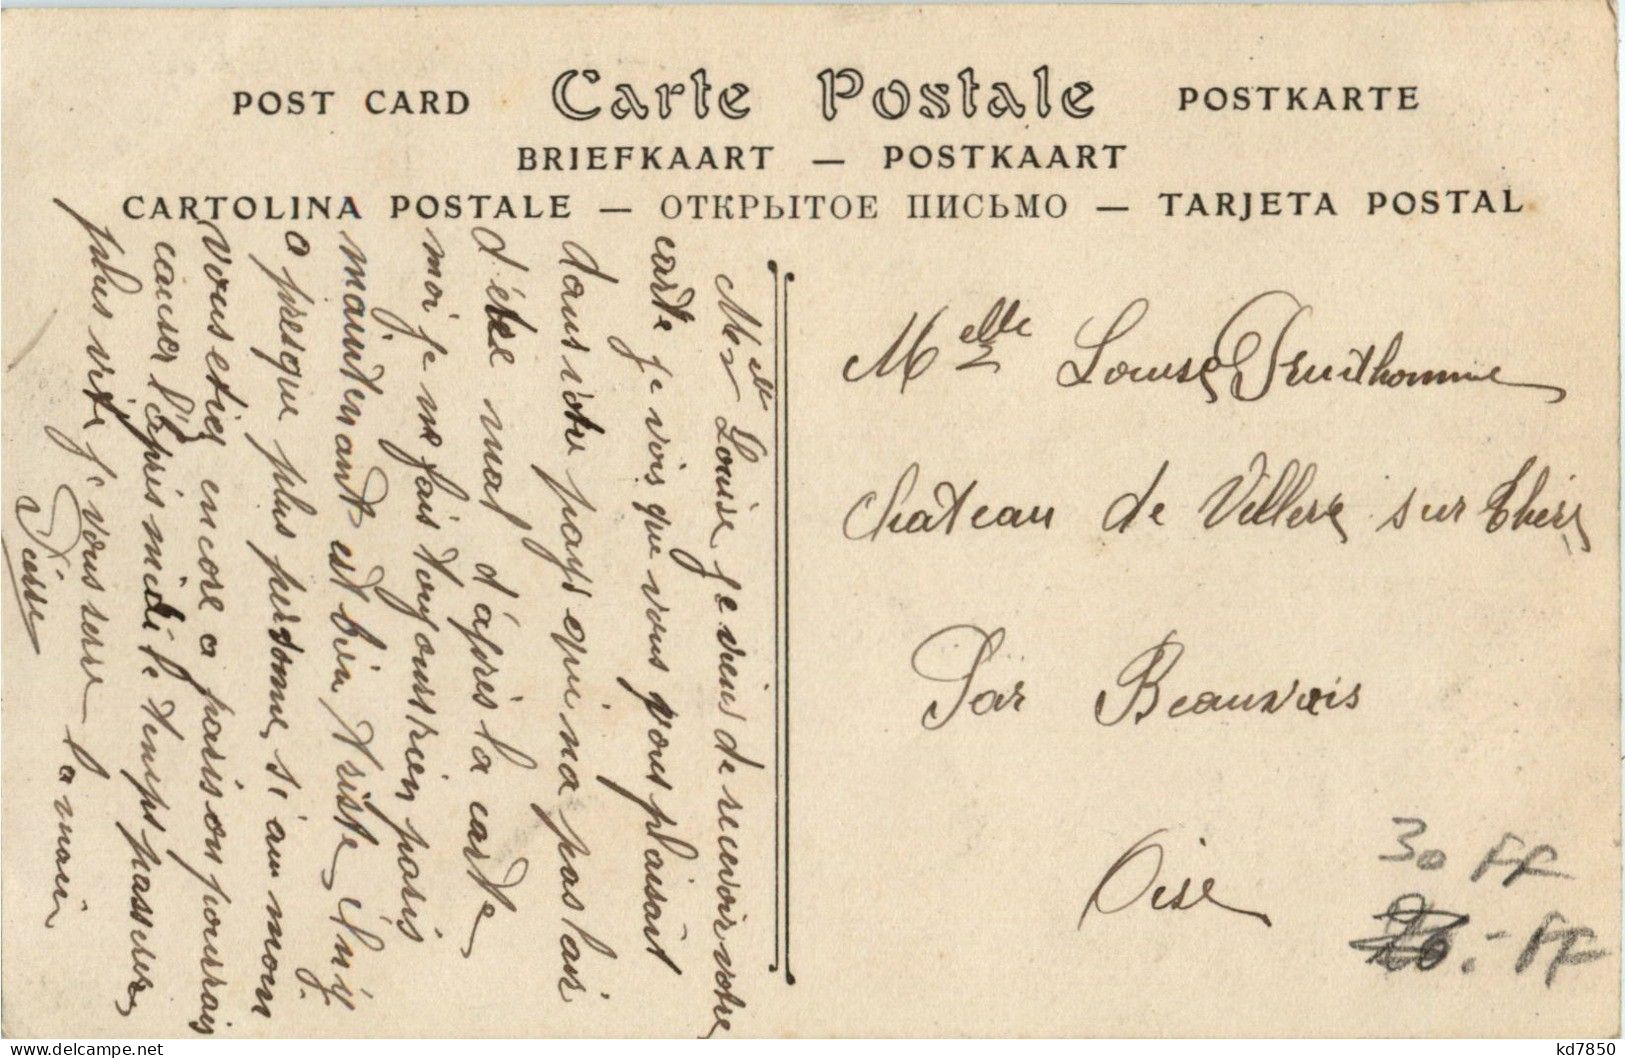 POST CARD Carte Postale POSTKARTE
BRIEFKAART — POSTKAART
CARTOLINA POSTALE — ОТКРЫТОЕ ПИСЬМО — TARJETA POSTAL
Melle Louise je viens de recevoir votre
carte je vois que vous vous plaisait
dans votre pays qui n'a pas lair
d'étre mal d'après la carte
moi je me fais toujours rien paris
maintenant est bien triste, il ny
a presque plus persomme, si au moin
vous etiez encore a paris on pourrais
causer l'après midi le temps passerer
plus vite je vous serre la main
Melle Louise Prudhomme
Chateau de Villers sur Thèrs
Par Beauvais
Oise
30 FF
20.- FF
kd7850